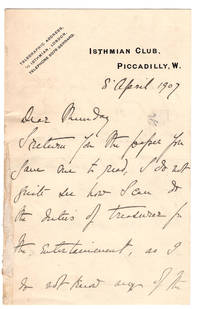 TELEGRAPHIC ADDRESS,
ISTHMIAN, LONDON.
TELEPHONE
ISTHMIAN CLUB,
PICCADILLY, W.
8 April 1907
Dear Munday
I return you the paper you
gave me to read, I do not
quite see how I can do
the duties of treasurer for
the entertainment, as I
do not know any of the